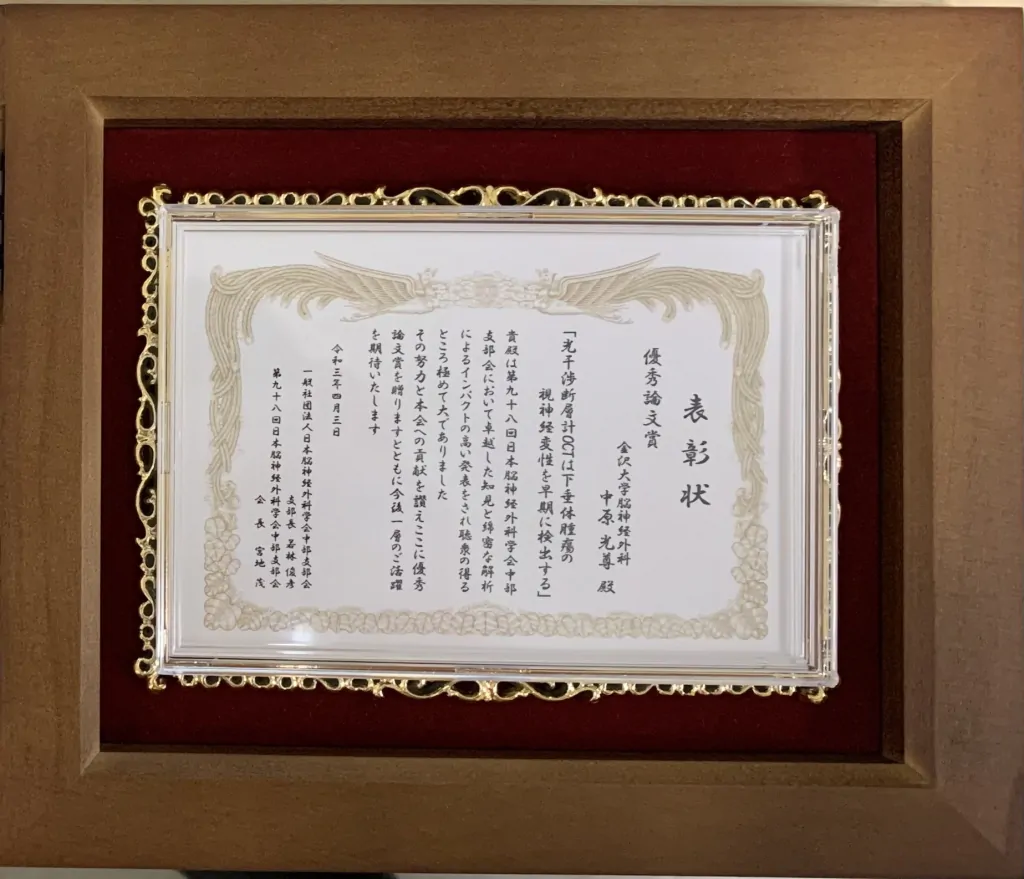 表彰状
優秀論文賞
金沢大学脳神経外科
中原光尊 殿
「光干渉断層計OCTは下垂体腫瘍の
視神経変性を早期に検出する」
貴殿は第九十八回日本脳神経外科学会中部
支部会において卓越した知見と綿密な解析
によるインパクトの高い発表をされ聴衆の得る
ところ極めて大でありました
その努力と本会への貢献を讃えここに優秀
論文賞を贈りますとともに今後一層のご活躍
を期待いたします
令和三年四月三日
一般社団法人日本脳神経外科学会中部支部会
支部長 若林俊彦
第九十八回日本脳神経外科学会中部支部会
会長 宮地茂